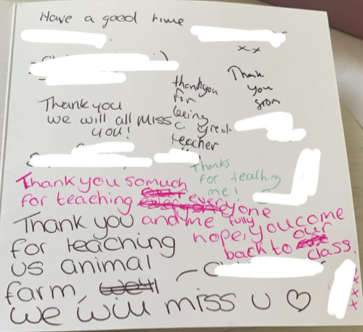 Have a good time
xx
Thank you
we will all miss
you!
thankyou
for
being
a great
teacher
Thank
you
Thanks
for teaching
me!
Thank you so much
for teaching everyone
and me fully
hope, you come
back to our
class.
Thank you
for teaching
us animal
farm,
we will miss u ♡
xxx